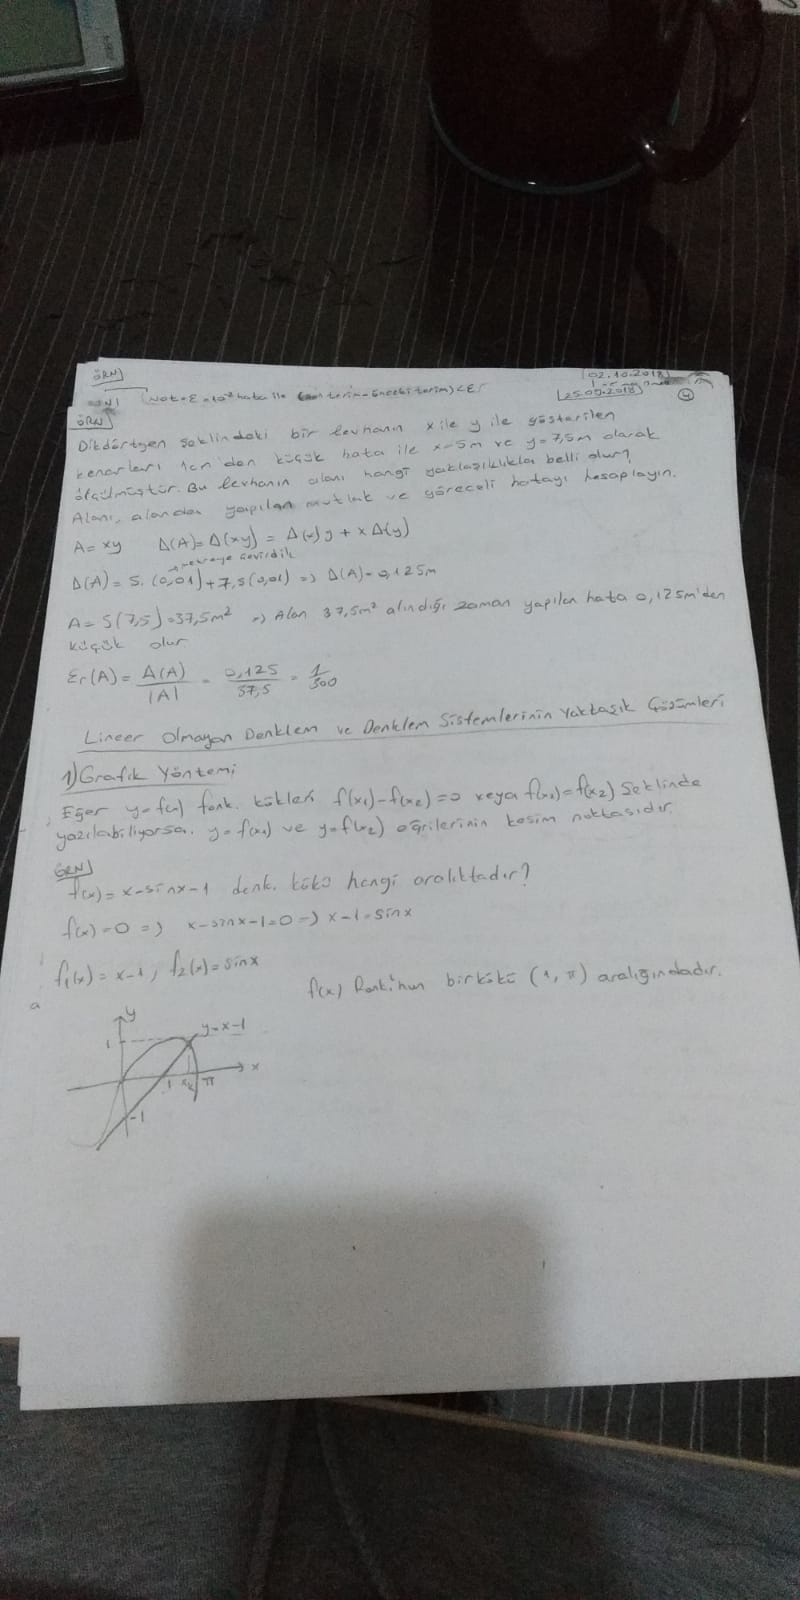 ÖRN
02.10.2018
(Not= E=10⁻² hata ile (son terim-önceki terim)<E
25.09.2018
4
ÖRN
Dikdörtgen şeklindeki bir levhanın x ile y ile gösterilen
kenarları 1cm'den küçük hata ile x=5m ve y=7,5m olarak
ölçülmüştür. Bu levhanın alanı hangi yaklaşıklıkla belli olur?
Alanı, alandan yapılan mutlak ve göreceli hatayı hesaplayın.
A=xy Δ(A)=Δ(xy) = Δ(x)y + xΔ(y)
metreye çevirdik
Δ(A) = 5.(0,01)+7,5(0,01) => Δ(A)=0,125m
A= 5(7,5)=37,5m² => Alan 37,5m² alındığı zaman yapılan hata 0,125m'den
küçük olur
Er(A)= Δ(A)/|A| = 0,125/37,5 = 1/300
Lineer Olmayan Denklem ve Denklem Sistemlerinin Yaklaşık Çözümleri
1) Grafik Yöntemi
Eğer y=f(x) fonk. kökleri f(x₁)-f(x₂)=0 veya f(x₁)=f(x₂) şeklinde
yazılabiliyorsa, y=f(x₁) ve y=f(x₂) eğrilerinin kesim noktasıdır.
ÖRN
f(x)= x-sinx-1 denk. kökü hangi aralıktadır?
f(x)=0 => x-sinx-1=0 => x-1=sinx
f₁(x)= x-1, f₂(x)=sinx
f(x) Fonk'nun bir kökü (1, π) aralığındadır.
y
y=x-1
1
x
1 xₖ π
-1